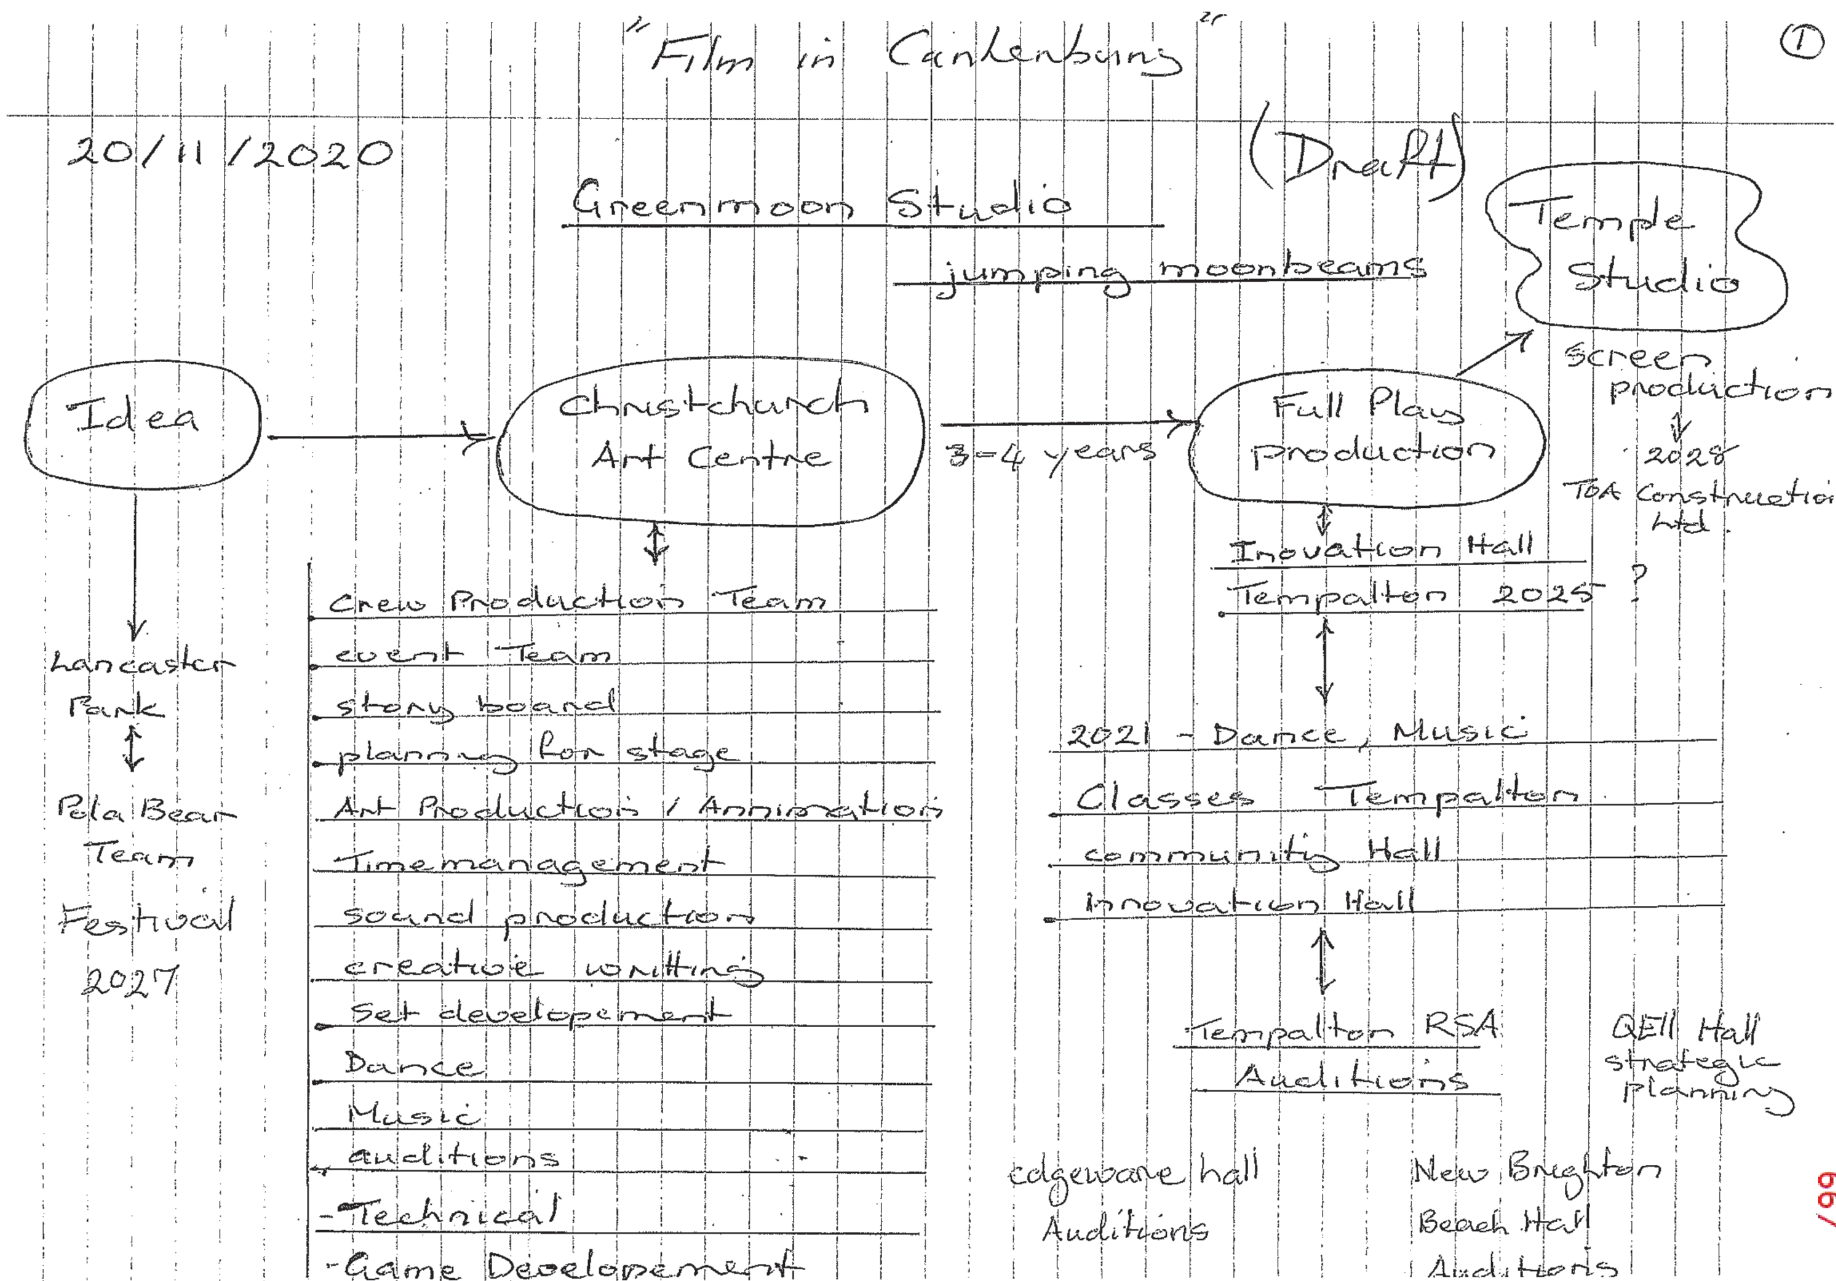 "Film in Canterbury"
1
20/11/2020
(Draft)
Greenmoon Studio
jumping moonbeams
Temple
Studio
screen
production
2028
TOA Construction
Ltd.
Idea
Christchurch
Art Centre
3-4 years
Full Play
production
Inovation Hall
Tempalton 2025 ?
Lancaster
Park
Pola Bear
Team
Festival
2027
Crew Production Team
event Team
story board
planning for stage
Art Production / Annimation
Timemanagement
sound production
creative writting
Set developement
Dance
Music
auditions
- Technical
- Game Developement
2021 - Dance, Music
Classes Tempalton
community Hall
innovation Hall
Tempalton RSA
Auditions
QEII Hall
strategic
planning
edgeware hall
Auditions
New Brighton
Beach Hall
Auditions